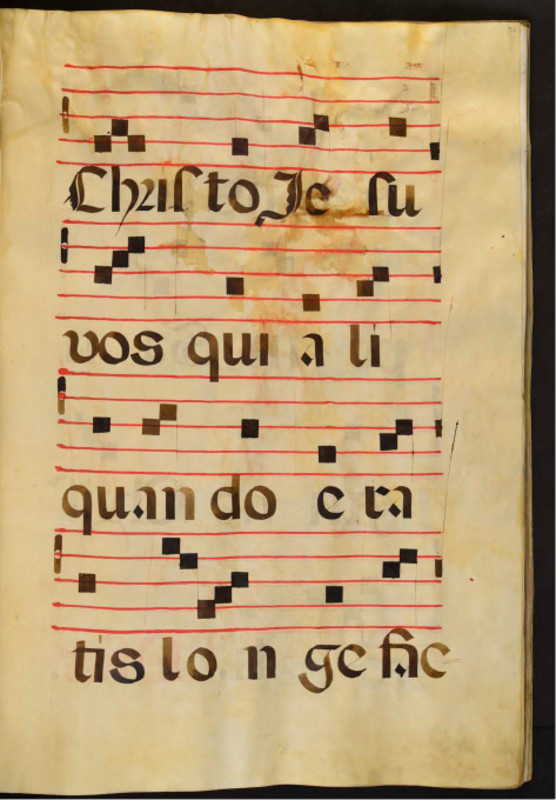 Christo Je su
vos qui a li
quan do e ra
tis lo n ge fac